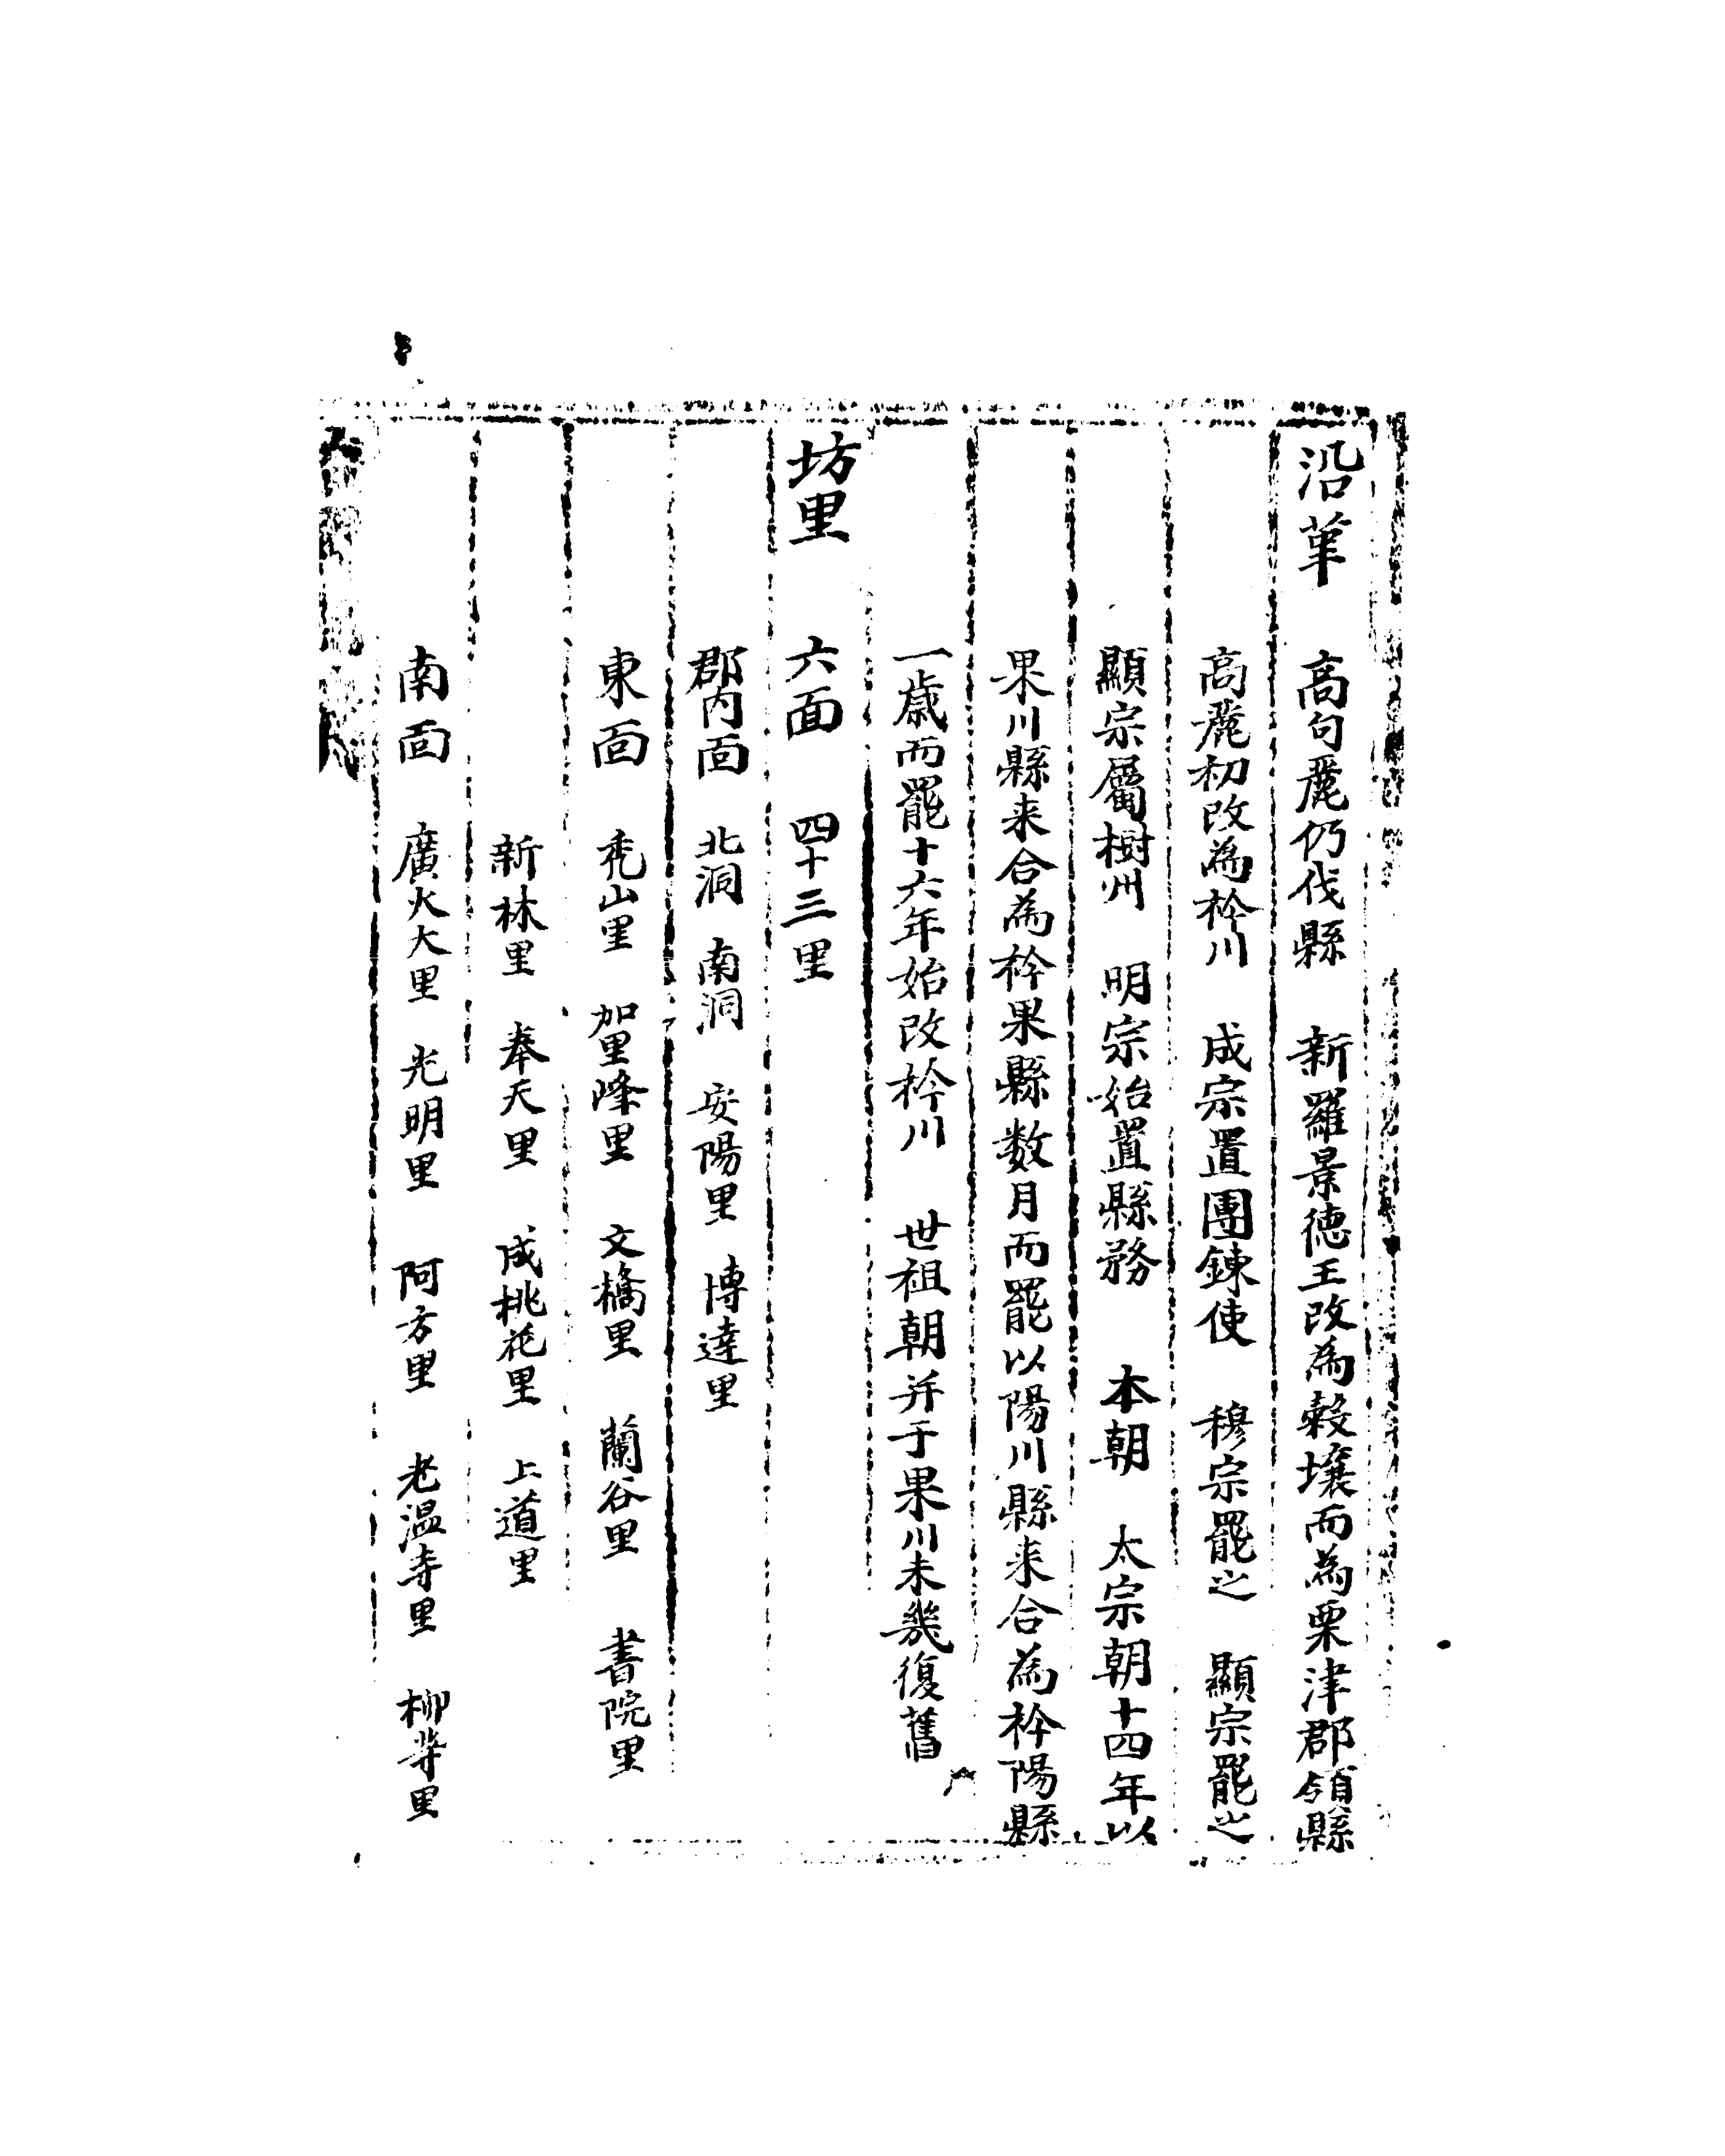 沿革 高句麗仍伐縣 新羅景德王改為穀壤而為栗津郡領縣
高麗初改為衿川 成宗置團鍊使 穆宗罷之 顯宗罷之
顯宗屬樹州 明宗始置縣務 本朝 太宗朝十四年以
果川縣来合為衿果縣数月而罷以陽川縣来合為衿陽縣
一歲而罷十六年始改衿川 世祖朝并于果川未幾復舊
坊里 六面 四十三里
郡內面 北洞 南洞 安陽里 博達里
東面 禿山里 加里峰里 文橋里 蘭谷里 書院里
新林里 奉天里 成桃花里 上道里
南面 廣火大里 光明里 阿方里 老温寺里 柳等里